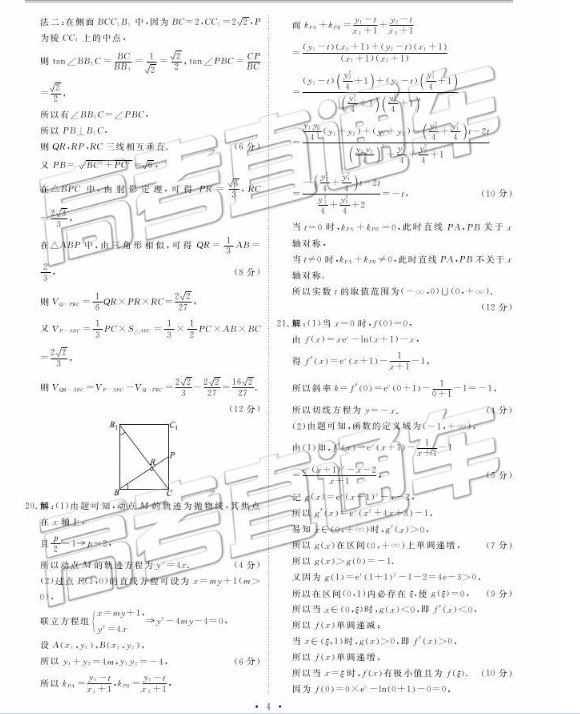 法二:在侧面 BCC₁B₁ 中,因为 BC=2,CC₁=2√2,P
为棱 CC₁ 上的中点,
则 tan∠BB₁C=BC/BB₁=1/√2=√2/2,tan∠PBC=CP/BC
=√2/2,
所以有∠BB₁C=∠PBC,
所以 PB⊥B₁C,
则 QR,RP,RC 三线相互垂直. (6分)
又 PB=√(BC²+PC²)=√6,
在△BPC 中,由射影定理,可得 PR=√6/3,RC
=2√3/3,
在△ABP 中,由三角形相似,可得 QR=1/3 AB=
2/3, (8分)
则 V_{Q-PRC}=1/6 QR×PR×RC=2√2/27,
又 V_{P-ABC}=1/3 PC×S_{△ABC}=1/3×1/2 PC×AB×BC
=2√2/3,
则 V_{QR-ABC}=V_{P-ABC}−V_{Q-PRC}=2√2/3−2√2/27=16√2/27.
(12分)
B₁ C₁
P
R
B C
20.解:(1)由题可知,动点 M 的轨迹为抛物线,其焦点
在 x 轴上,
且 p/2=1⇒p=2,
所以动点 M 的轨迹方程为 y²=4x. (4分)
(2)过点 F(1,0)的直线方程可设为 x=my+1(m>
0),
联立方程组{x=my+1, y²=4x ⇒y²−4my−4=0,
设 A(x₁,y₁),B(x₂,y₂),
所以 y₁+y₂=4m,y₁y₂=−4, (6分)
所以 k_{PA}=(y₁−t)/(x₁+1),k_{PB}=(y₂−t)/(x₂+1),
而 k_{PA}+k_{PB}=(y₁−t)/(x₁+1)+(y₂−t)/(x₂+1)
=((y₁−t)(x₂+1)+(y₂−t)(x₁+1))/((x₁+1)(x₂+1))
=((y₁−t)(y₂²/4+1)+(y₂−t)(y₁²/4+1))/((y₁²/4+1)(y₂²/4+1))
=(y₁y₂/4(y₁+y₂)+(y₁+y₂)−(y₁²/4+y₂²/4)t−2t)/((y₁y₂/4)²+y₁²/4+y₂²/4+1)
=(−(y₁²/4+y₂²/4)t−2t)/(y₁²/4+y₂²/4+2)=−t, (10分)
当 t=0 时,k_{PA}+k_{PB}=0,此时直线 PA,PB 关于 x
轴对称,
当 t≠0 时,k_{PA}+k_{PB}≠0,此时直线 PA,PB 不关于 x
轴对称.
所以实数 t 的取值范围为(−∞,0)∪(0,+∞).
(12分)
21.解:(1)当 x=0 时,f(0)=0,
由 f(x)=xeˣ−ln(x+1)−x,
得 f′(x)=eˣ(x+1)−1/(x+1)−1,
所以斜率 k=f′(0)=e⁰(0+1)−1/(0+1)−1=−1,
所以切线方程为 y=−x. (4分)
(2)由题可知,函数的定义域为(−1,+∞),
由(1)知,f′(x)=eˣ(x+1)−1/(x+1)−1
=(eˣ(x+1)²−x−2)/(x+1), (5分)
记 g(x)=eˣ(x+1)²−x−2,
所以 g′(x)=eˣ(x²+4x+3)−1,
易知 x∈(0,+∞)时,g′(x)>0,
所以 g(x)在区间(0,+∞)上单调递增, (7分)
所以 g(x)>g(0)=−1.
又因为 g(1)=e¹(1+1)²−1−2=4e−3>0,
所以在区间(0,1)内必存在 ξ,使 g(ξ)=0, (9分)
所以当 x∈(0,ξ)时,g(x)<0,即 f′(x)<0,
所以 f(x)单调递减;
当 x∈(ξ,1)时,g(x)>0,即 f′(x)>0,
所以 f(x)单调递增,
所以当 x=ξ 时,f(x)有极小值且为 f(ξ). (10分)
因为 f(0)=0×e⁰−ln(0+1)−0=0,
• 4 •
高考直通车
高考直通车
高考直通车